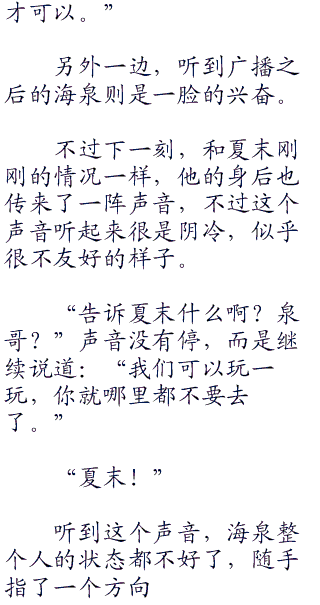 才可以。”
另外一边，听到广播之
后的海泉则是一脸的兴奋。
不过下一刻，和夏末刚
刚的情况一样，他的身后也
传来了一阵声音，不过这个
声音听起来很是阴冷，似乎
很不友好的样子。
“告诉夏末什么啊？泉
哥？”声音没有停，而是继
续说道：“我们可以玩一
玩，你就哪里都不要去
了。”
“夏末！”
听到这个声音，海泉整
个人的状态都不好了，随手
指了一个方向